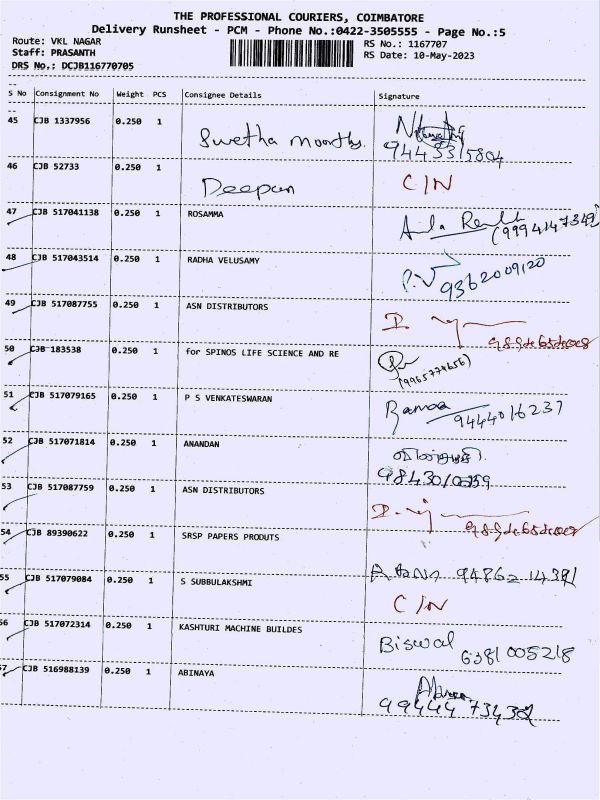 THE PROFESSIONAL COURIERS, COIMBATORE
Delivery Runsheet - PCM - Phone No.:0422-3505555 - Page No.:5
Route: VKL NAGAR
Staff: PRASANTH
DRS No.: DCJB116770705
RS No.: 1167707
RS Date: 10-May-2023
S No Consignment No Weight PCS Consignee Details Signature
45 CJB 1337956 0.250 1 Swetha moorthy. 9443315804
46 CJB 52733 0.250 1 Deepan C/N
47 CJB 517041138 0.250 1 ROSAMMA
48 CJB 517043514 0.250 1 RADHA VELUSAMY P.V 9362009120
49 CJB 517087755 0.250 1 ASN DISTRIBUTORS
50 CJB 183538 0.250 1 for SPINOS LIFE SCIENCE AND RE (9965774656)
51 CJB 517079165 0.250 1 P S VENKATESWARAN 9444016237
52 CJB 517071814 0.250 1 ANANDAN
53 CJB 517087759 0.250 1 ASN DISTRIBUTORS
54 CJB 89390622 0.250 1 SRSP PAPERS PRODUTS
55 CJB 517079084 0.250 1 S SUBBULAKSHMI C/N
56 CJB 517072314 0.250 1 KASHTURI MACHINE BUILDES Biswal 6381005218
57 CJB 516988139 0.250 1 ABINAYA